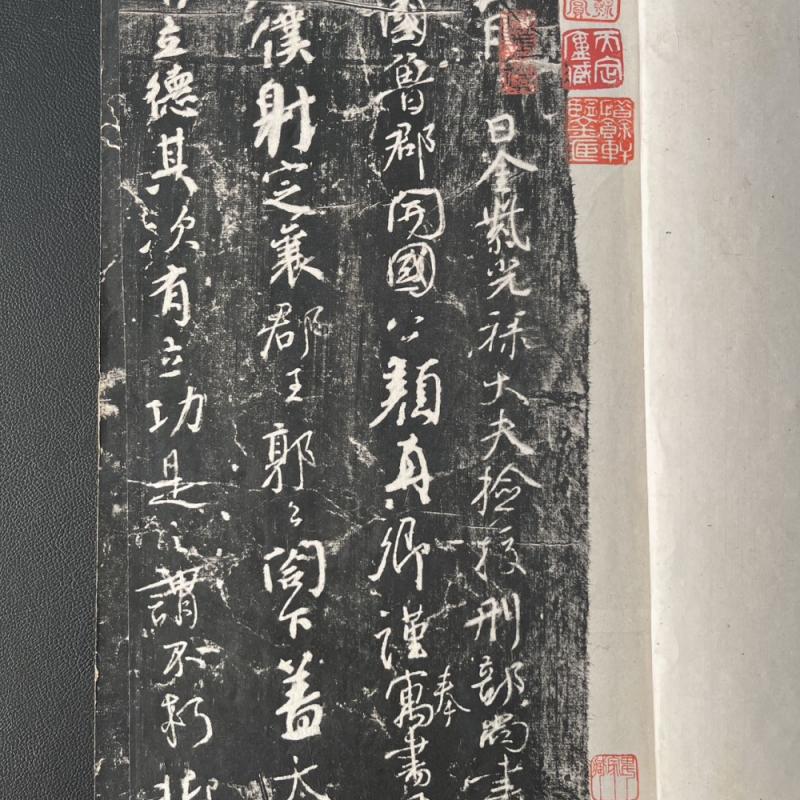 月 日金紫光祿大夫撿校刑部尚書
國魯郡開國公顏真卿謹奉寓書
僕射定襄郡王郭公閤下蓋太
立德其次有立功是之謂不朽抑